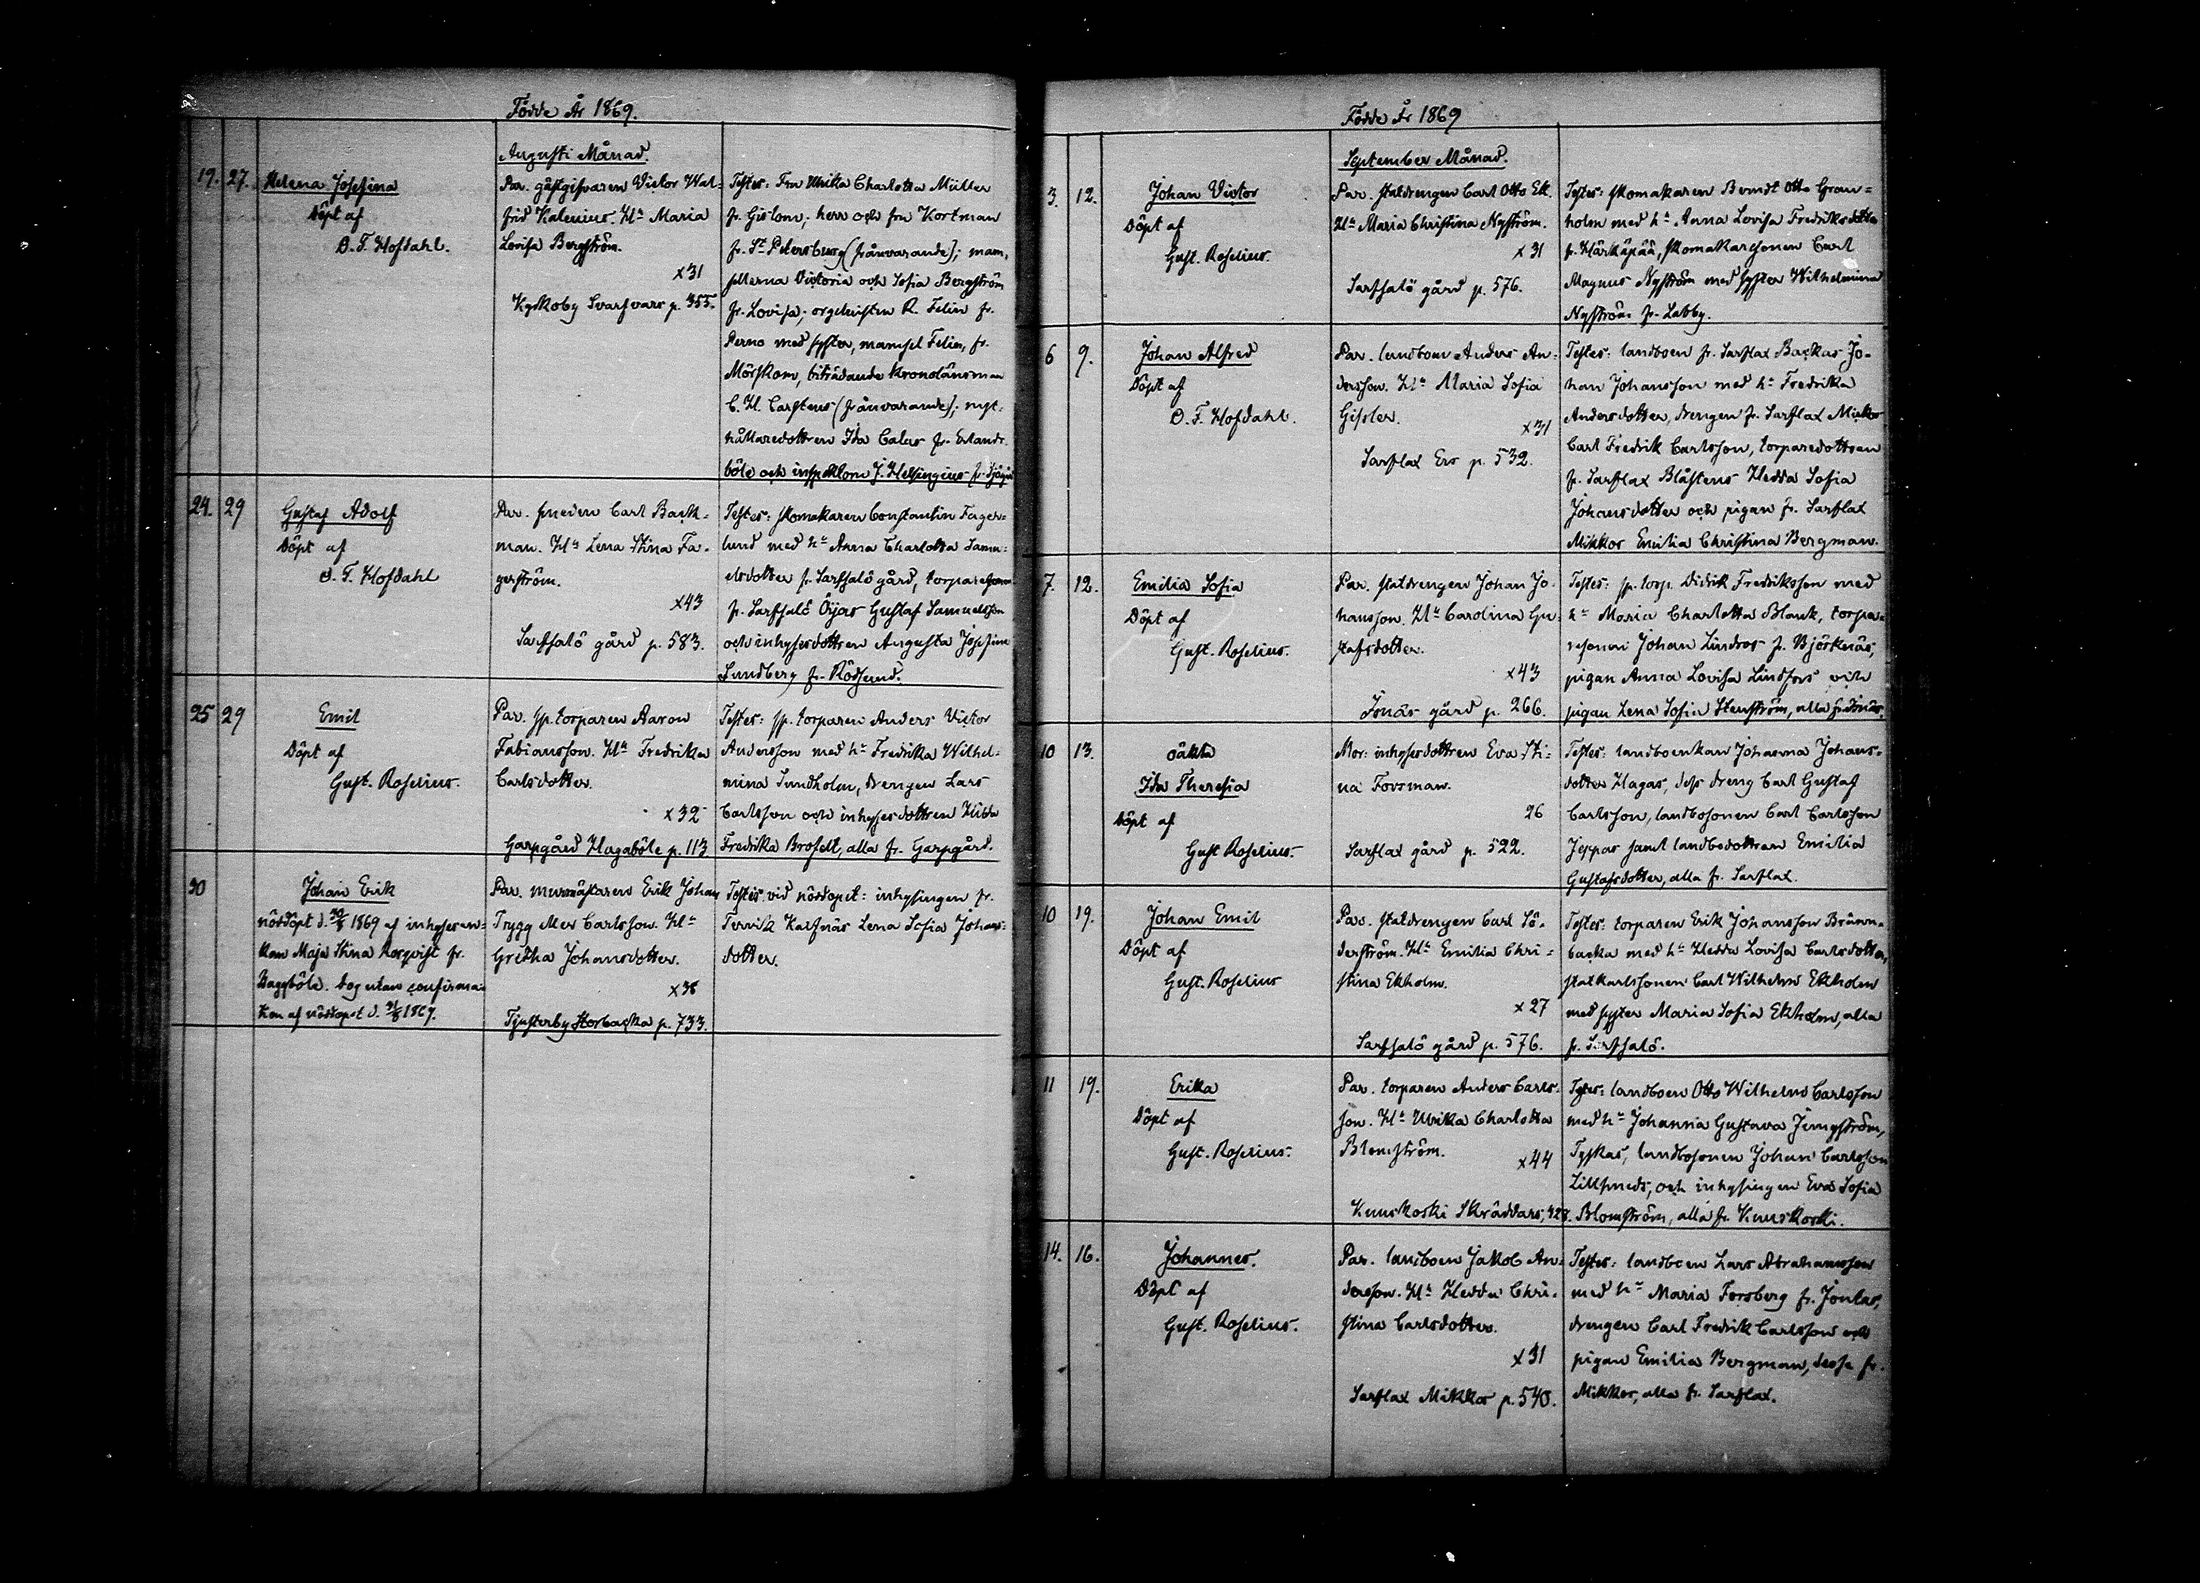 Födde År 1869.
Augusti Månad.
19. 27. Helena Josefina
Döpt af
O. F. Hofdahl.
Par. gästgifvaren Victor Wal-
frid Kalenius. H:u Maria
Lovisa Bergström.
x31
Kyrkoby Svarfvars p. 355.
Testes: Fru Ulrika Charlotta Müller
fr. Gislom; herr och fru Kortman
fr. S:t Petersburg (frånvarande); mam-
sellerna Victoria och Sofia Bergström
fr. Lovisa; orgelnisten R. Felin fr.
Perno med syster, mamsel Felin, fr.
Mörskom, biträdande Kronolänsman
C. H. Carstens (frånvarande); ryt-
hållaredottren Ida Calas fr. Erlands-
böle och inspektorn J. Helsingius fr. Sjögård
24. 29 Gustaf Adolf
Döpt af
O. F. Hofdahl
Par. smeden Carl Back-
man. H:u Lena Stina Fa-
gerström.
x43
Sarfsalö gård p. 583.
Testes: skomakaren Constantin Fager-
lund med h:u Anna Charlotta Samu-
elsdotter fr. Sarfsalö gård, torparesonen
fr. Sarfsalö Öijar Gustaf Samuelsson
och inhysesdottren Augusta Josefina
Sundberg fr. Rödsund.
25 29 Emil
Döpt af
Gust. Roselius.
Par. sp. torparen Aaron
Fabiansson. H:u Fredrika
Carlsdotter.
x32
Garpgård Hagaböle p. 113.
Testes: sp. torparen Anders Victor
Andersson med h:u Fredrika Wilhel-
mina Sundholm, drengen Lars
Carlsson och inhysesdottren Hilda
Fredrika Brofelt, alla fr. Garpgård.
30 Johan Erik
nöddöpt d. 30/8 1869 af inhysesen-
kan Maja Stina Rorqvist fr.
Baggböle. Dog utan confirma-
tion af nöddopet d. 31/8 1869.
Par. murmäkaren Erik Johan
Trygg Alex Carlsson. H:u
Gretha Johansdotter.
x38
Tjusterby Storbacka p. 733.
Testes vid nöddopet: inhysingen fr.
Tervik Kalfnäs Lena Sofia Johans-
dotter.
Födde År 1869
September Månad.
3. 12. Johan Victor
Döpt af
Gust. Roselius.
Par. statdrengen Carl Otto Ek.
H:u Maria Christina Nyström.
x31
Sarfsalö gård p. 576.
Testes: skomakaren Berndt Otto Gran-
holm med h:u Anna Lovisa Fredriksdotter
fr. Härkäpää, skomakaresonen Carl
Magnus Nyström med syster Wilhelmina
Nyström fr. Labby.
6 9. Johan Alfred
Döpt af
O. F. Hofdahl.
Par. landboen Anders An-
dersson. H:u Maria Sofia
Gisler.
x31
Sarflax Ers p. 532.
Testes: landboen fr. Sarflax Backas Jo-
han Johansson med h:u Fredrika
Andersdotter, drengen fr. Sarflax Mickos
Carl Fredrik Carlsson, torparedottren
fr. Sarflax Blåstens Hedda Sofia
Johansdotter och pigan fr. Sarflax
Mikkos Emilia Christina Bergman.
7. 12. Emilia Sofia
Döpt af
Gust. Roselius.
Par. statdrengen Johan Jo-
hansson. H:u Carolina Gu-
stafsdotter.
x43
Isnäs gård p. 266.
Testes: sp. torp. Didrik Fredriksson med
h:u Maria Charlotta Blank, torpa-
resonen Johan Lindros fr. Björknäs,
pigan Anna Lovisa Lindfors och
pigan Lena Sofia Stenström, alla fr. Isnäs.
10 13. oäkta
Ida Theresia
Döpt af
Gust Roselius.
Mor: inhysesdottren Eva Sti-
na Forsman.
26
Sarflax gård p. 522.
Testes: landboenkan Johanna Johans-
dotter Hagas, dess dreng Carl Gustaf
Carlsson, landbosonen Carl Carlsson
Jeppas samt landbodottren Emilia
Gustafsdotter, alla fr. Sarflax.
10 19. Johan Emil
Döpt af
Gust. Roselius
Par. statdrengen Carl Sö-
derström. H:u Emilia Chri-
stina Ekholm.
x27
Sarfsalö gård p. 576.
Testes: torparen Erik Johansson Brunn-
backa med h:u Hedda Lovisa Carlsdotter,
statkarlssonen Carl Wilhelm Ekholm
med syster Maria Sofia Ekholm, alla
fr. Sarfsalö.
11 19. Erika
Döpt af
Gust. Roselius.
Par. torparen Anders Carls-
son. H:u Ulrika Charlotta
Blomström.
x44
Kuuskoski Skräddars, 428.
Testes: landboen Otto Wilhelm Carlsson
med h:u Johanna Gustava Jungström,
Tyskas, landbosonen Johan Carlsson
Lillsmeds, och inhysingen Eva Sofia
Blomström, alla fr. Kuuskoski.
14. 16. Johannes.
Döpt af
Gust. Roselius.
Par. landboen Jakob An-
dersson. H:u Hedda Chri-
stina Carlsdotter.
x31
Sarflax Mikkos p. 540.
Testes: landboen Lars Abrahamsson
med h:u Maria Forsberg fr. Jonlas,
drengen Carl Fredrik Carlsson och
pigan Emilia Bergman, desse fr.
Mikkos, alla fr. Sarflax.